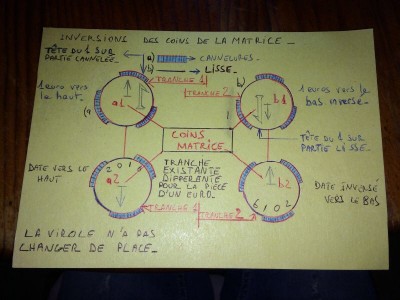 INVERSIONS DES COINS DE LA MATRICE_
TÊTE DU 1 SUR
PARTIE CANNELÉE.
a) CANNELURES
b) LISSE.
TRANCHE 1
TRANCHE 2
1 euro vers
le haut.
(a
a1
b)
b1
1 EUROS VERS le
bas inversé_
COINS
MATRICE.
TÊTE DU 1 SUR
PARTIE LISSE.
DATE VERS LE
HAUT
2010
a2
TRANCHE
EXISTANTE
DIFFERENTE
POUR LA PIÈCE
D'UN EURO.
b2
6102
DATE INVERSÉ
VERS LE BAS
TRANCHE 1
TRANCHE 2
LA VIROLE N'A PAS
CHANGER DE PLACE_